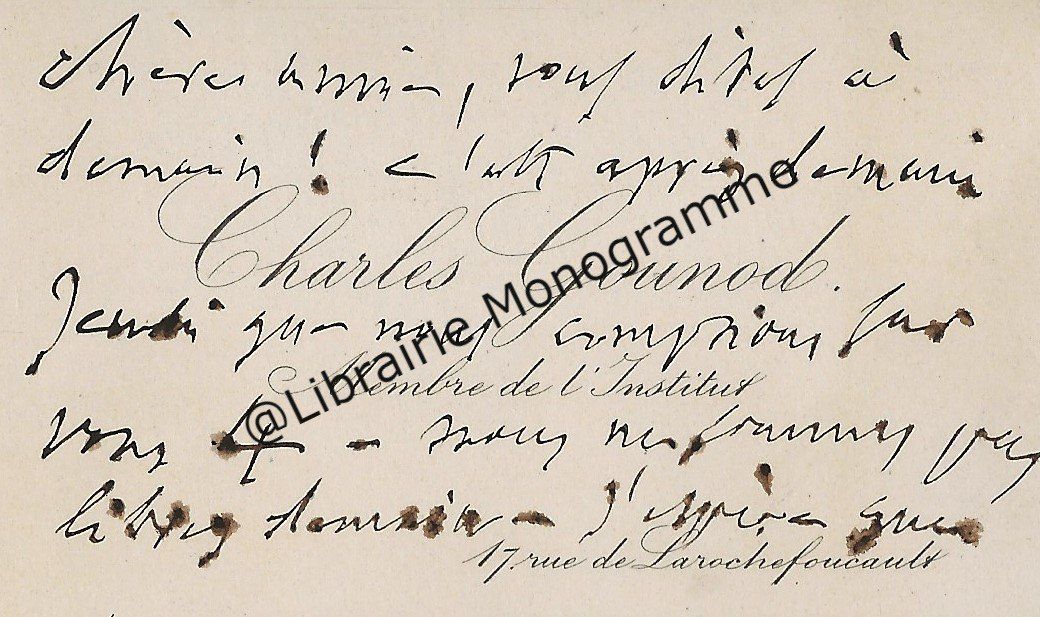 chère amie, vous dites à
demain ! c'est après demain
Charles Gounod.
Jeudi que nous comptions sur
Membre de l'Institut
vous - nous ne sommes pas
libres demain - J'espère que
17, rue de Larochefoucault
@Librairie Monogramme